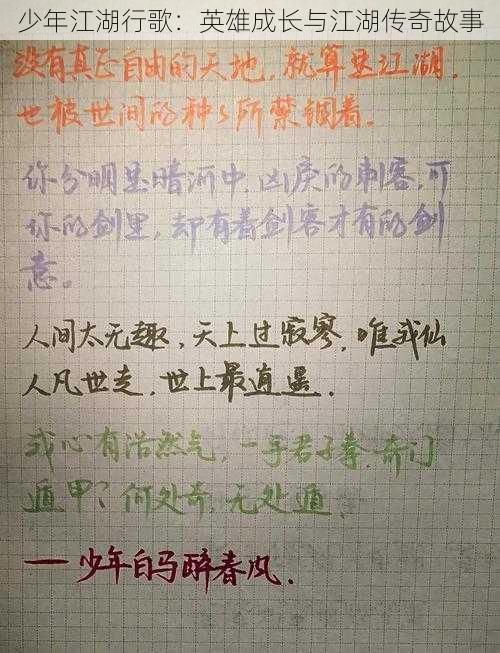 少年江湖行歌：英雄成长与江湖传奇故事
没有真正自由的天地，就算是江湖，
也被世间的种种所禁锢着。
你分明是暗河中，凶戾的刺客，可
你的剑里，却有着剑客才有的剑
意。
人间太无趣，天上过寂寥，唯我仙
人凡世走，世上最逍遥。
我心有浩然气，一手君子拳，奇门
遁甲？何处奇，无处遁。
——少年白马醉春风。